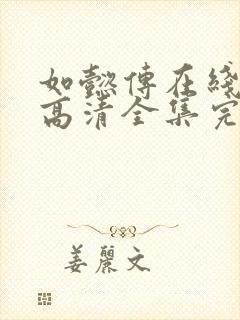 如懿傳在綫
高清全集完
姜麗文